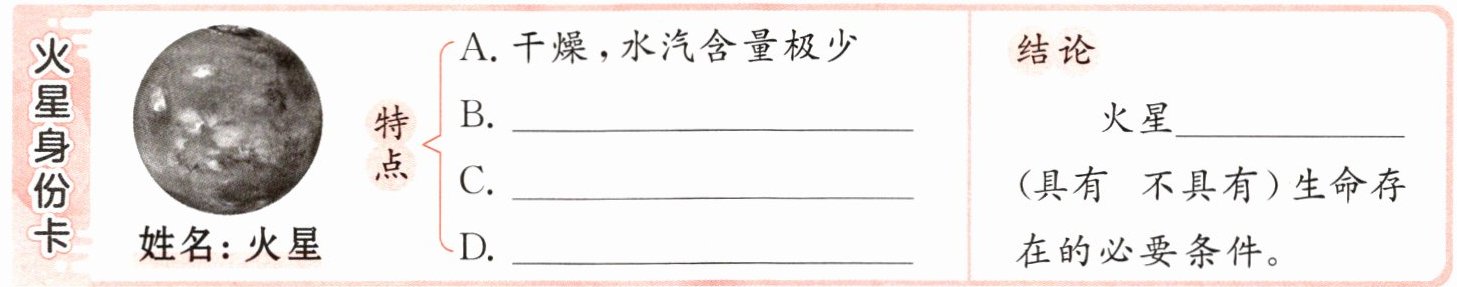 火星身份卡
姓名：火星
特点
A. 干燥，水汽含量极少
B. ____________
C. ____________
D. ____________
结论
火星____________
（具有 不具有）生命存
在的必要条件。